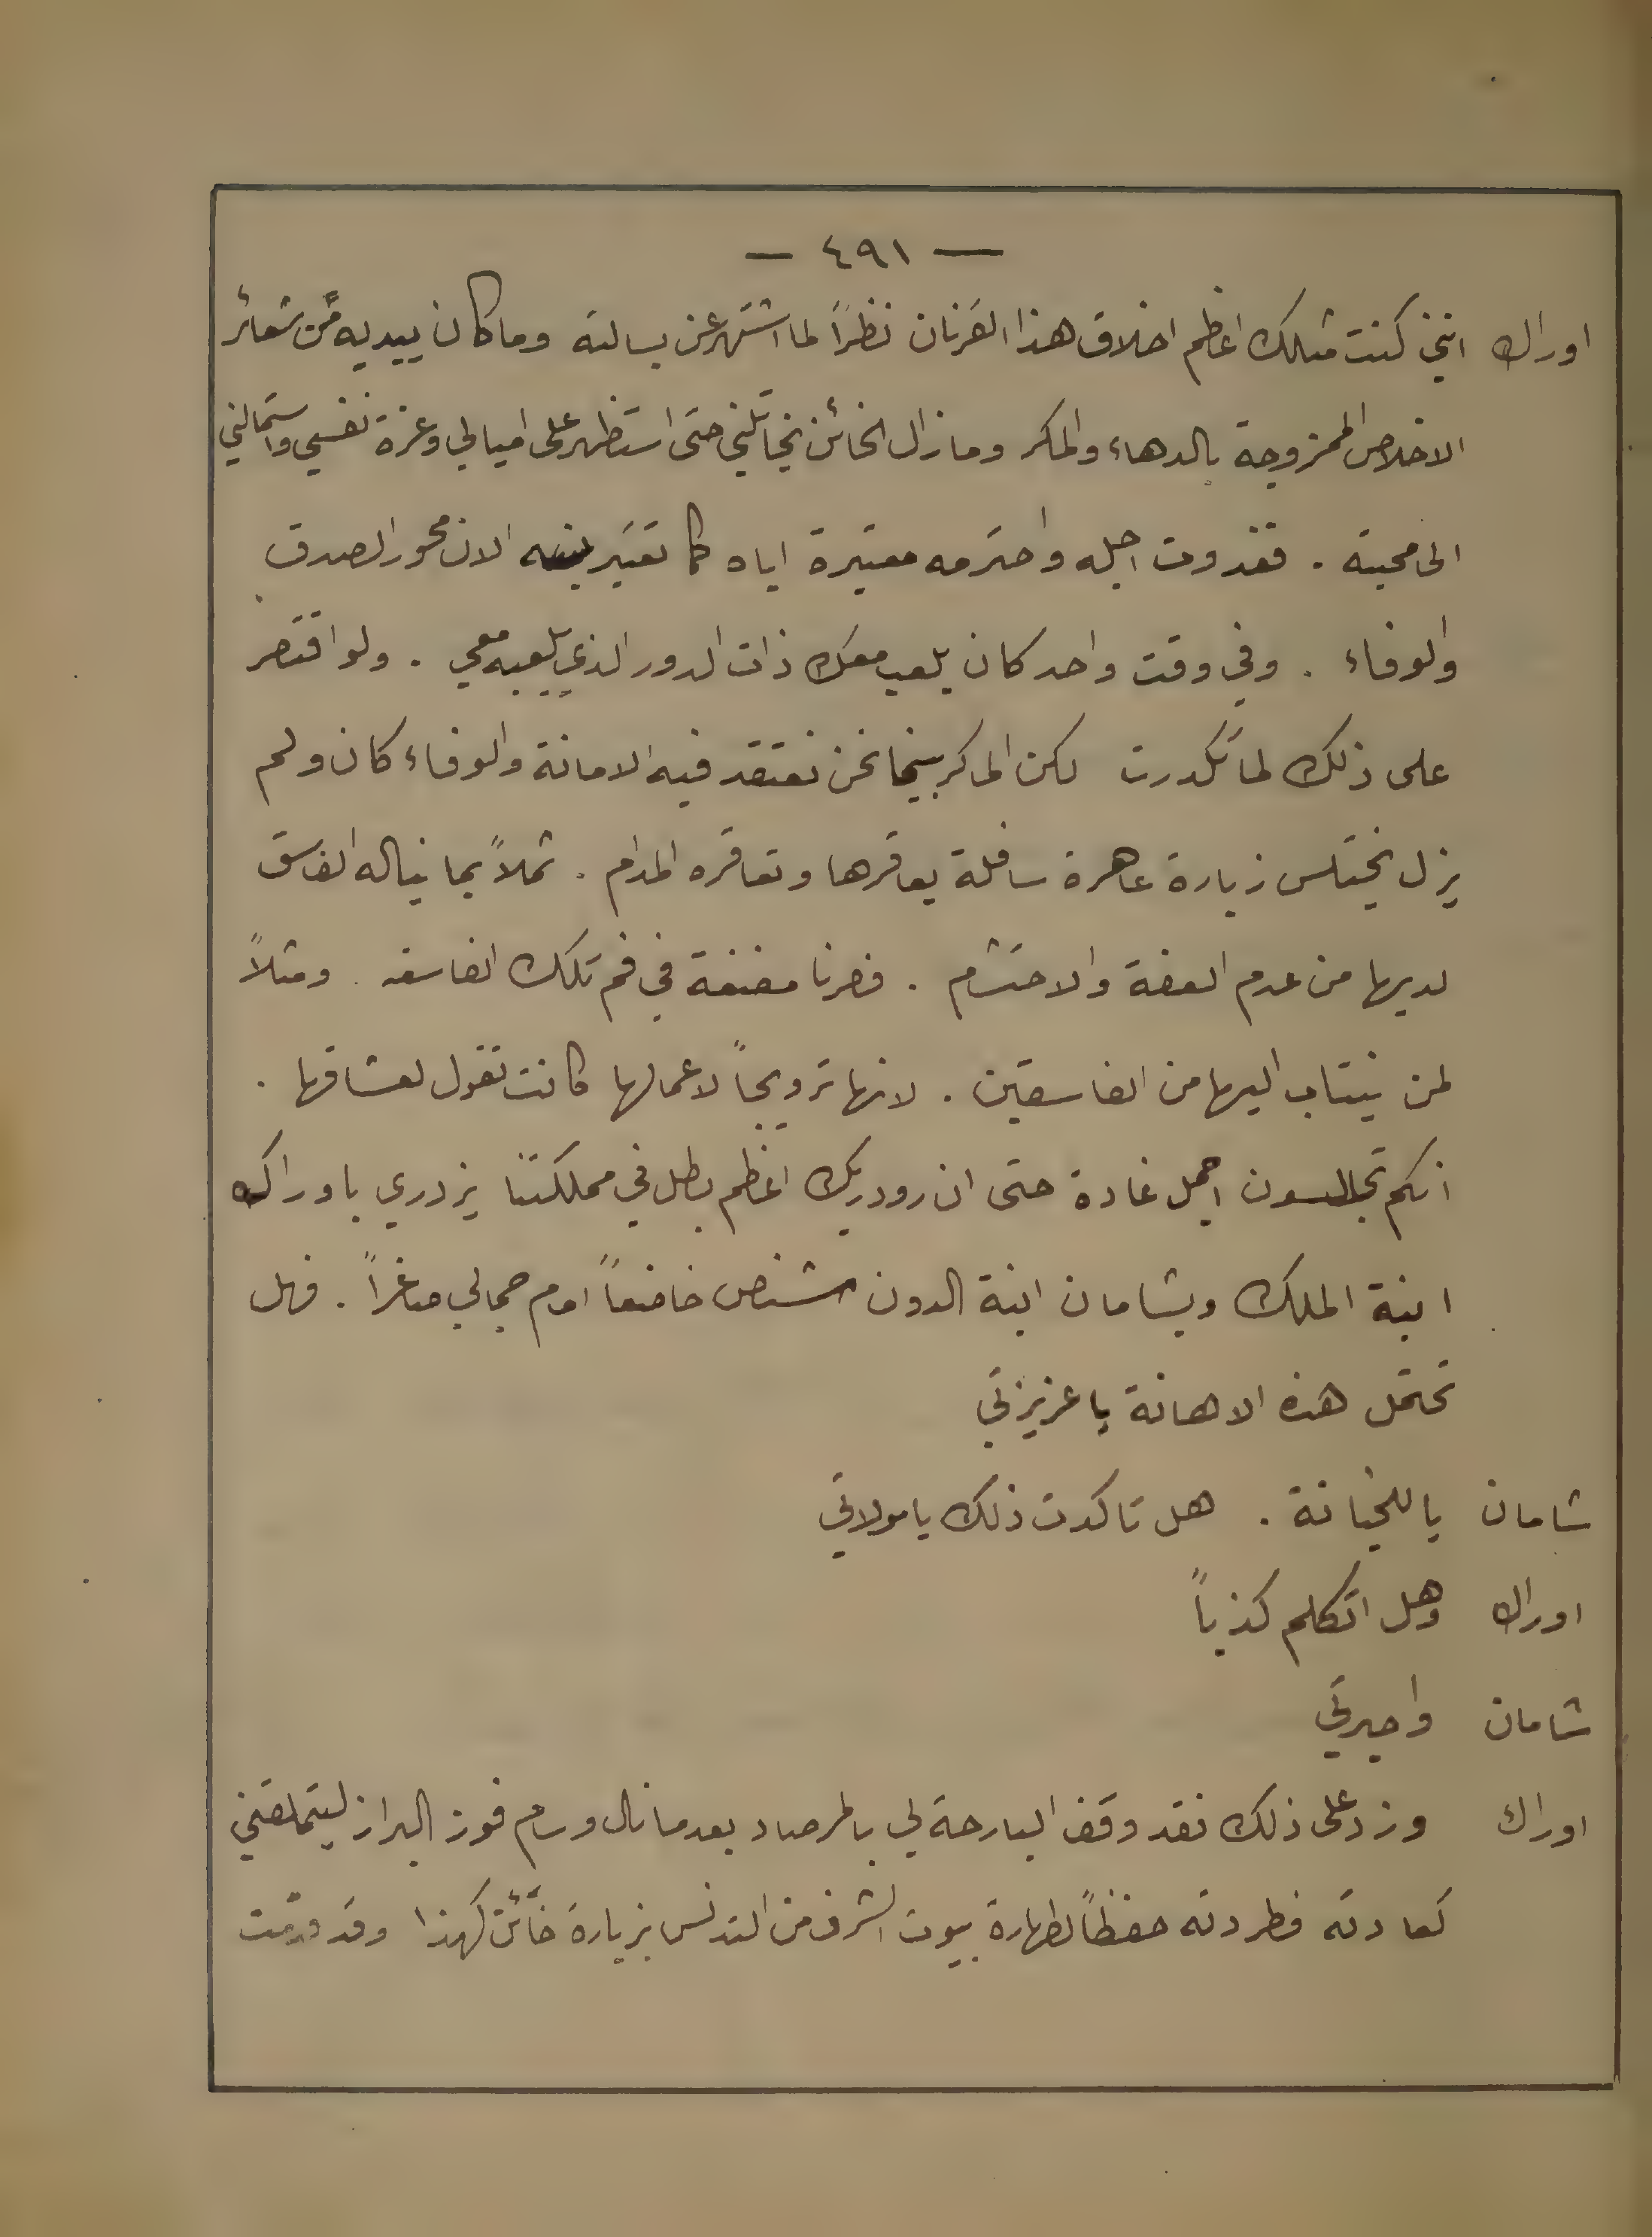 — ٤٩١ —
اوراك انني كنت مثلك اعظم اخلاق هذا القرنان نظراً لما اشتهر عن بسالته وما كان يبديه من شعائر
الاخلاص الممزوجة بالدهاء والمكر وما زال الخائن يخاتلني حتى استظهر على اميالي وعزة نفسي واستمالني
الى محبته . فغدوت اجله واحترمه معتبرة اياه كما تعتبرينه الان محور الصدق
والوفاء . وفي وقت واحد كان يلعب معك ذات الدور الذي يلعبه معي . ولو اقتصر
على ذلك لما تكدرت لكن الماكر بينما نحن نعتقد فيه الامانة والوفاء كان ولم
يزل يختلس زيارة عاهرة سافلة يعاقرها وتعاقره المدام . ثملاً بما يناله الفاسق
لديها من عدم العفة والاحتشام . فصرنا مضغة في فم تلك الفاسقه . ومثلاً
لمن ينتاب اليها من الفاسقين . لانها ترويجاً لاعمالها كانت تقول لعشاقها .
انكم تجالسون اجمل غادة حتى ان رودريك اعظم بطل في مملكتنا يزدري باوراك
ابنة الملك وبشامان ابنة الدون خاضعاً امام جمالي صاغراً . فهل
تحتمل هذه الاهانة يا عزيزتي
شامان يا للخيانة . هل تاكدت ذلك يا مولاتي
اوراك وهل اتكلم كذباً
شامان واحيرتي
اوراك وزد على ذلك فقد وقف البارحة لي بالمرصاد بعد ما نال وسام فوز البراز ليتملقني
كعادته فطردته حفظاً لطهارة بيوت الشرف من التدنس بزيارة خائن كهذا وقد